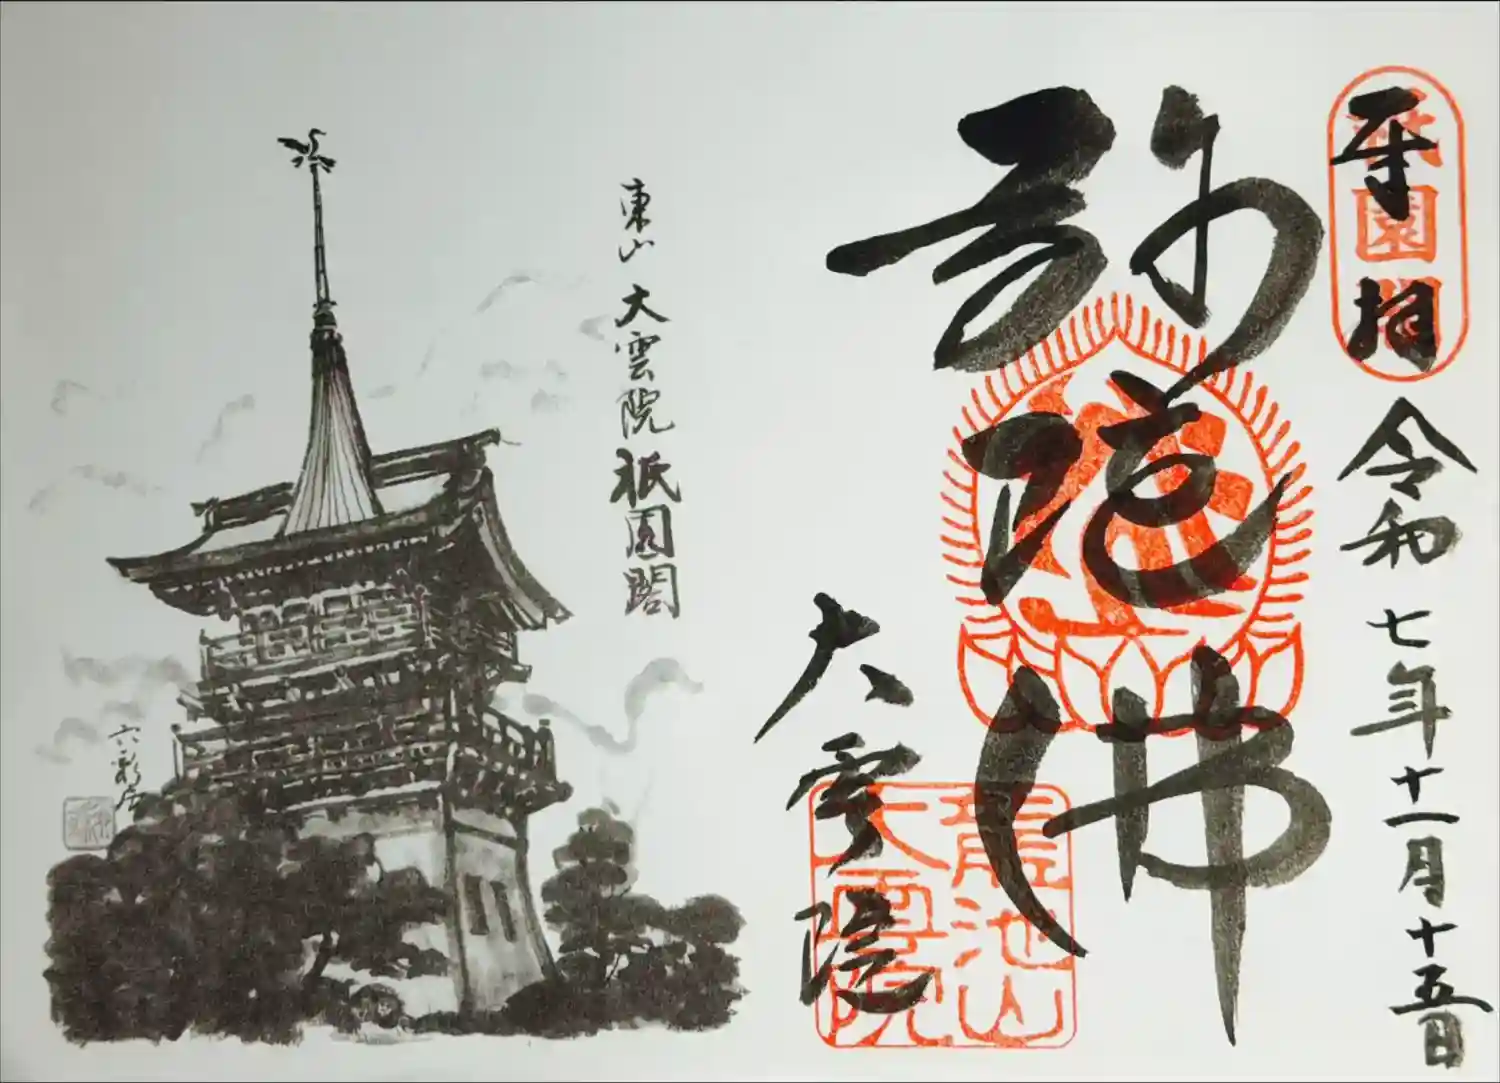 奉拝
祇園閣
令和七年十一月十五日
弥陀佛
大雲院
龍池山
大雲院
東山 大雲院 祇園閣